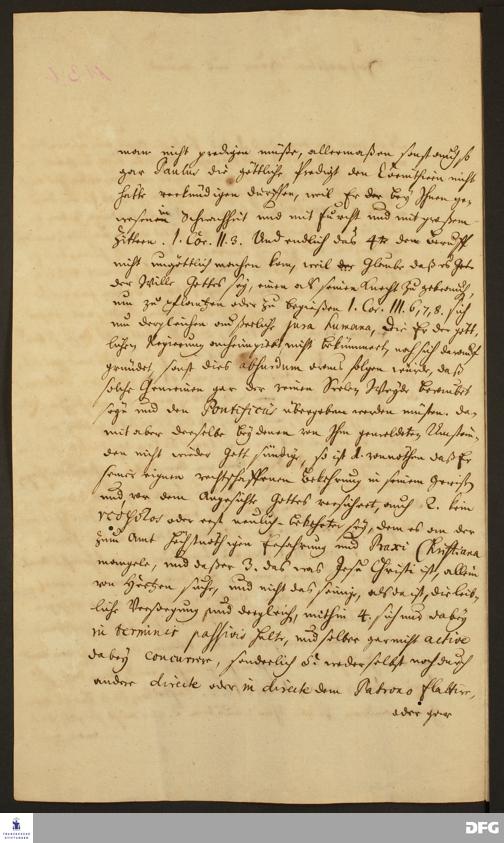 man nicht predigen müste, allermaßen sonst auch so
gar Paulus die göttliche Predigt den Corinthiern nicht
hätte verkündigen dürfften, weil Er bey Ihnen ge-
wesen in Schwachheit und mit Furcht und mit großem
Zittern. 1. Cor. II. 3. Und endlich das 4te den Beruff
nicht ungöttlich machen kan, weil der Glaube daß es Gott
der Wille Gottes sey, einen als seinen Knecht zu gebrauch,
nun zu pflantzen oder zu begießen 1. Cor. III. 6, 7, 8. sich
um dergleichen äußerliche jura humana, die Er der gött-
lichen Regierung nicht bekümmert, noch sich darauf
gründet, sonst dies absurdum draus folgen würde, daß
solche Gemeinen gar der reinen Seelen Weyde beraubet
seyn und den Pontificiis übergeben werden müsten. Da-
mit aber derselbe bey denen von Ihm gemeldeten Umstän-
den nicht wieder Gott sündige, so ist 1. vonnöthen daß Er
seiner eignen rechtschaffenen Bekehrung in seinem Gewiß
und vor dem Angesichte Gottes versichert, auch 2. kein
νεόφυτος oder erst neulich bekehrter sey, dem es an der
zum Amt höchstnöthigen Erfahrung und Praxi Christiana
mangele, und daßer 3. das was Jesu Christi ist, allein
von Hertzen suche, und nicht das seinige, als da ist, die leib-
liche Versorgung und dergleich, mithin 4. sich nur dabey
in terminis passivis halte, und selber gar nicht active
dabey concurrire, sonderlich 5. weder selbst noch durch
andere directe oder in directe dem Patrono flattire,
oder gar
FRANCKESCHE
STIFTUNGEN
DFG